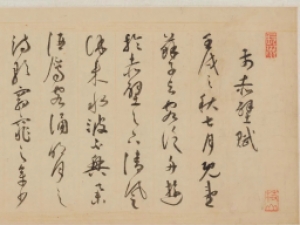 前赤壁賦
壬戌之秋七月既望
蘇子與客泛舟遊
於赤壁之下清風
徐來水波不興舉
酒屬客誦明月之
詩歌窈窕之章少